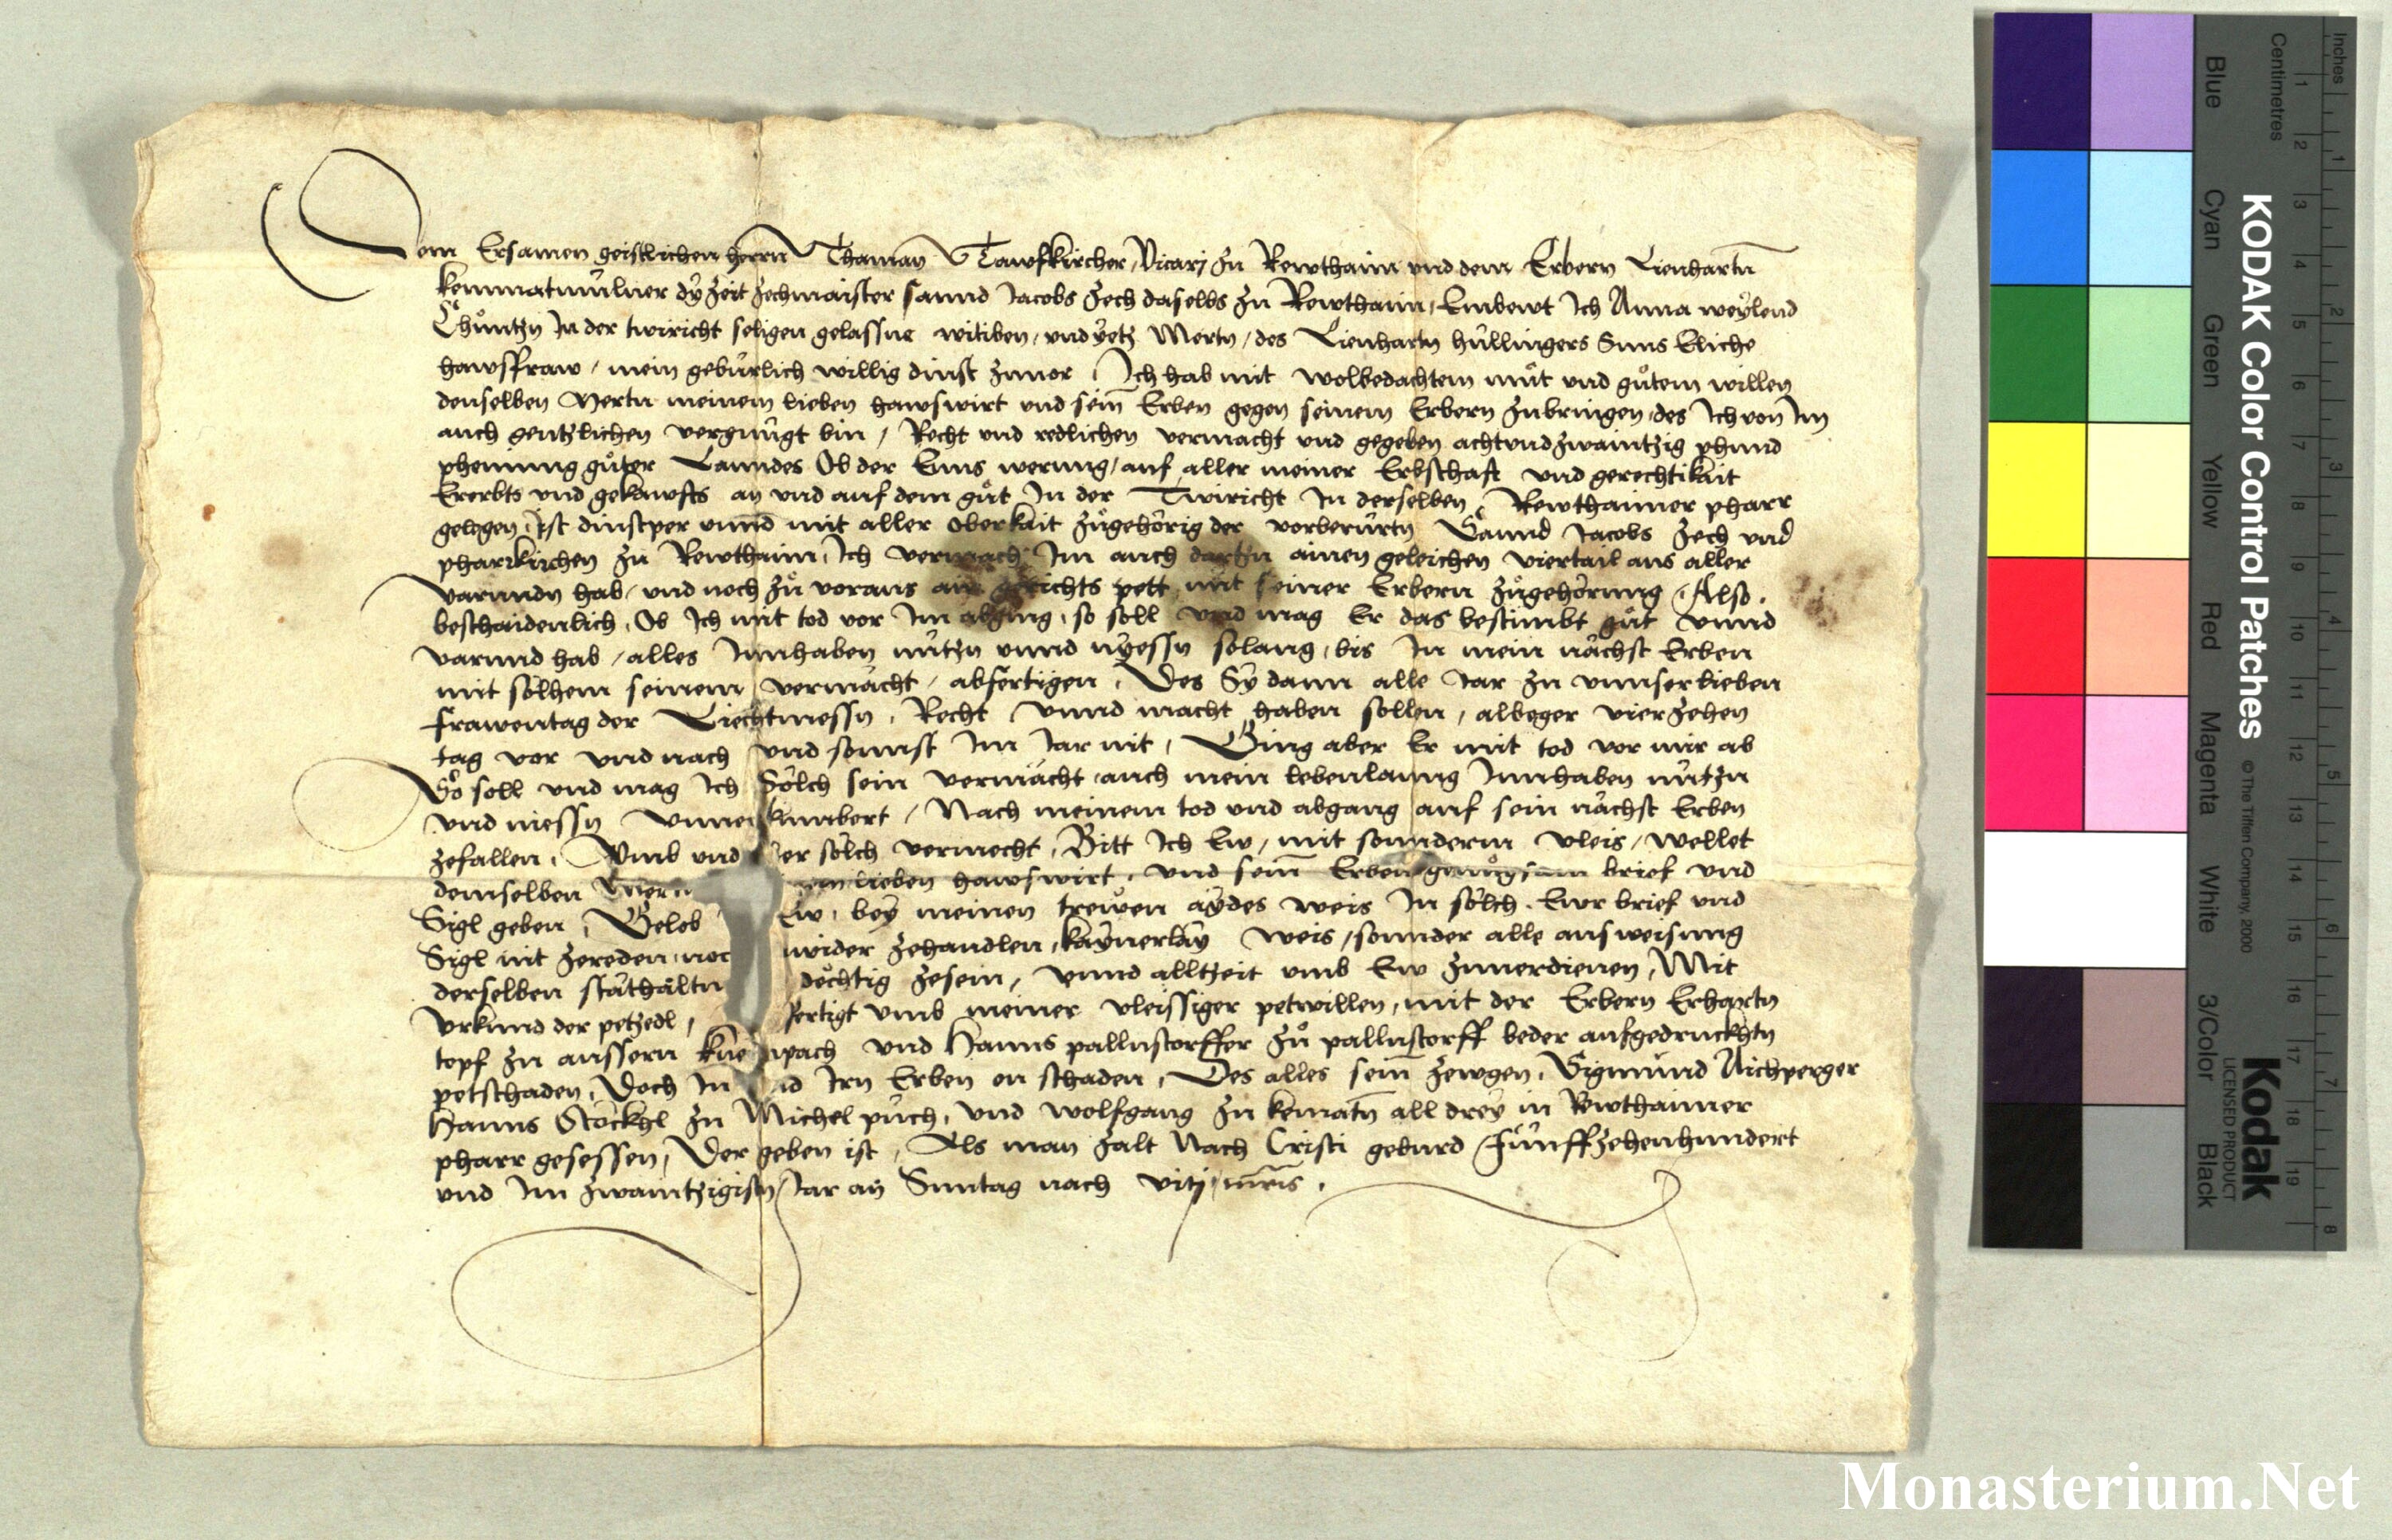 Dem Ersamen geistlichen herrn Thaman Tawfkircher, Vicarj zu Rewthaim vnd dem Erbern Lienhartn
kemmatmulner dy zeit zechmaister sannd Jacobs zech daselbs zu Rewthaim, Embewt Ich Anna weylend
Chůntzn In der twiricht seligen gelassne witiben, vnd yetz Mertn, des Lienhartn hullingers Suns Eliche
hawsfraw, mein geburlich willig dinst zuuor, Ich hab mit wolbedachtem můt vnd gůtem willen
denselben Mertn meinem lieben hawswirt vnd sein̄ Erben gegen seinem Erbern zubringen, des Ich von Im
auch gentzlichen vergnugt bin, Recht vnd redlichen vermacht vnd gegeben achtvndzwaintzig phund
phenning gůter Lanndes Ob der Enns werung, auf aller meiner Erbschaft vnd gerechtikait
Ererbts vnd gekawfts an vnd auf dem gůt In der Twiricht In derselben Rewthaimer pharr
gelegen, Ist dinstper vnnd mit aller oberkait zůgehörig der vorberürtn Sannd Jacobs zech vnd
pharrkirchen zu Rewthaim, Ich vermach Im auch dartzu ainen geleichen viertail aus aller
varnndn hab, vnd noch zů voraus ain gerichts pett mit seiner Erbern zůgehörung, Also,
beschaidenlich, Ob Ich mit tod vor Im abging, so soll vnd mag Er das bestimbt gůt vnnd
varnnd hab, alles Innhaben nutzn vnnd nyessn solang, bis In mein nächst Erben
mit sölhem seinem vermächt, abfertigen, Des Sy dann alle Jar zu vnnser lieben
frawentag der Liechtmessn, Recht vnnd macht haben sollen, albeger vierzehen
tag vor vnd nach vnd sonnst Im Jar nit, Ging aber Er mit tod vor mir ab
Sö soll vnd mag Ich Sölch sein vermächt auch mein lebenlanng Innhaben nutzn
vnd niessn vnuerkumbert, Nach meinem tod vnd abgang auf sein nächst Erben
zefallen, Vmb vnd vber sölch vermecht, Bitt Ich Ew, mit sonnderm vleis, wellet
demselben Mertn lieben hawswirt, vnd sein̄ Erben genugsam brief vnd
Sigl geben, Gelob Ew, bey meinen trewen aydes weis In sölch Ewr brief vnd
Sigl nit zereden noc wider zehandlen, kaynerlay weis, sonnder alle ausweisung
derselben stäthaltn döchtig zesein, vnnd alltzeit vmb Ew zuuerdienen, Mit
Vrkund der petzedl, fertigt vmb meiner vleissiger petwillen, mit der Erbern Erhartn
topf zu aussern kue npach vnd Hanns pallnstorffer zů pallnstorff beder aufgedruckhtn
petschaden, Doch In nd Irn Erben on schaden, Des alles sein̄ zewgen, Sigmund Aichperger
Hanns Stöckhl zu Michel puch, vnd wolfgang zu kematn̄ all drey in Rewthaimer
pharr gesessen, Der geben ist, Als man zalt Nach Cristi geburd Fünffzehenhundert
vnd Im zwaintzigistn Jar an Sunntag nach vitj mr̄is.
KODAK Color Control Patches
© The Tiffen Company, 2000
Kodak
LICENSED PRODUCT
Inches 1 2 3 4 5 6 7 8
Centimetres 1 2 3 4 5 6 7 8 9 10 11 12 13 14 15 16 17 18 19
Blue Cyan Green Yellow Red Magenta White 3/Color Black
Monasterium.Net